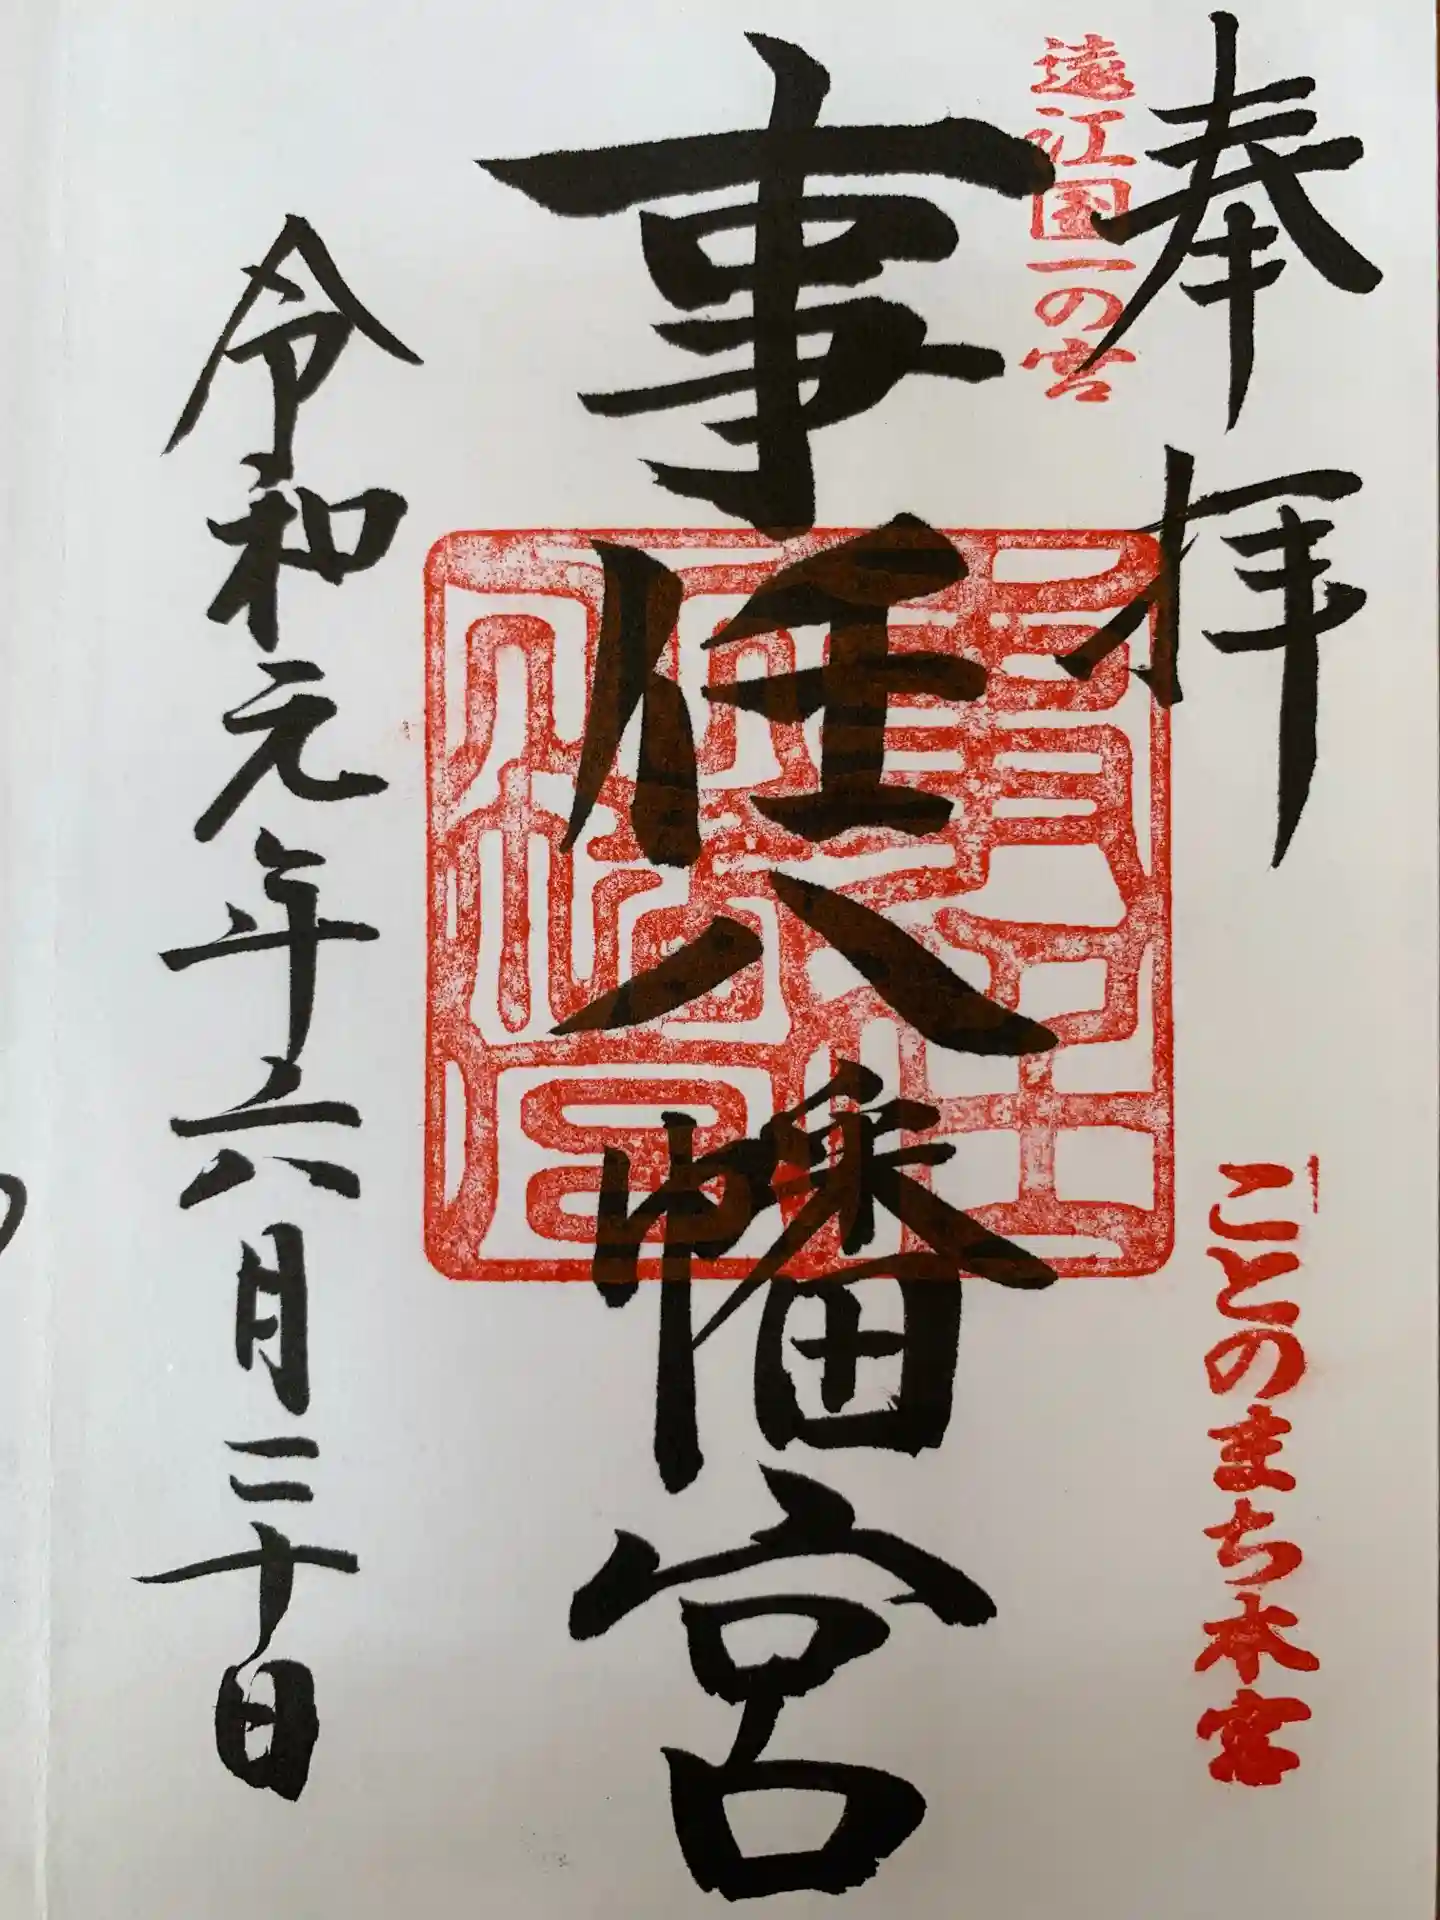 奉拝
遠江国一の宮
ことのまち本宮
事任八幡宮
事任八幡宮
令和元年六月三十日